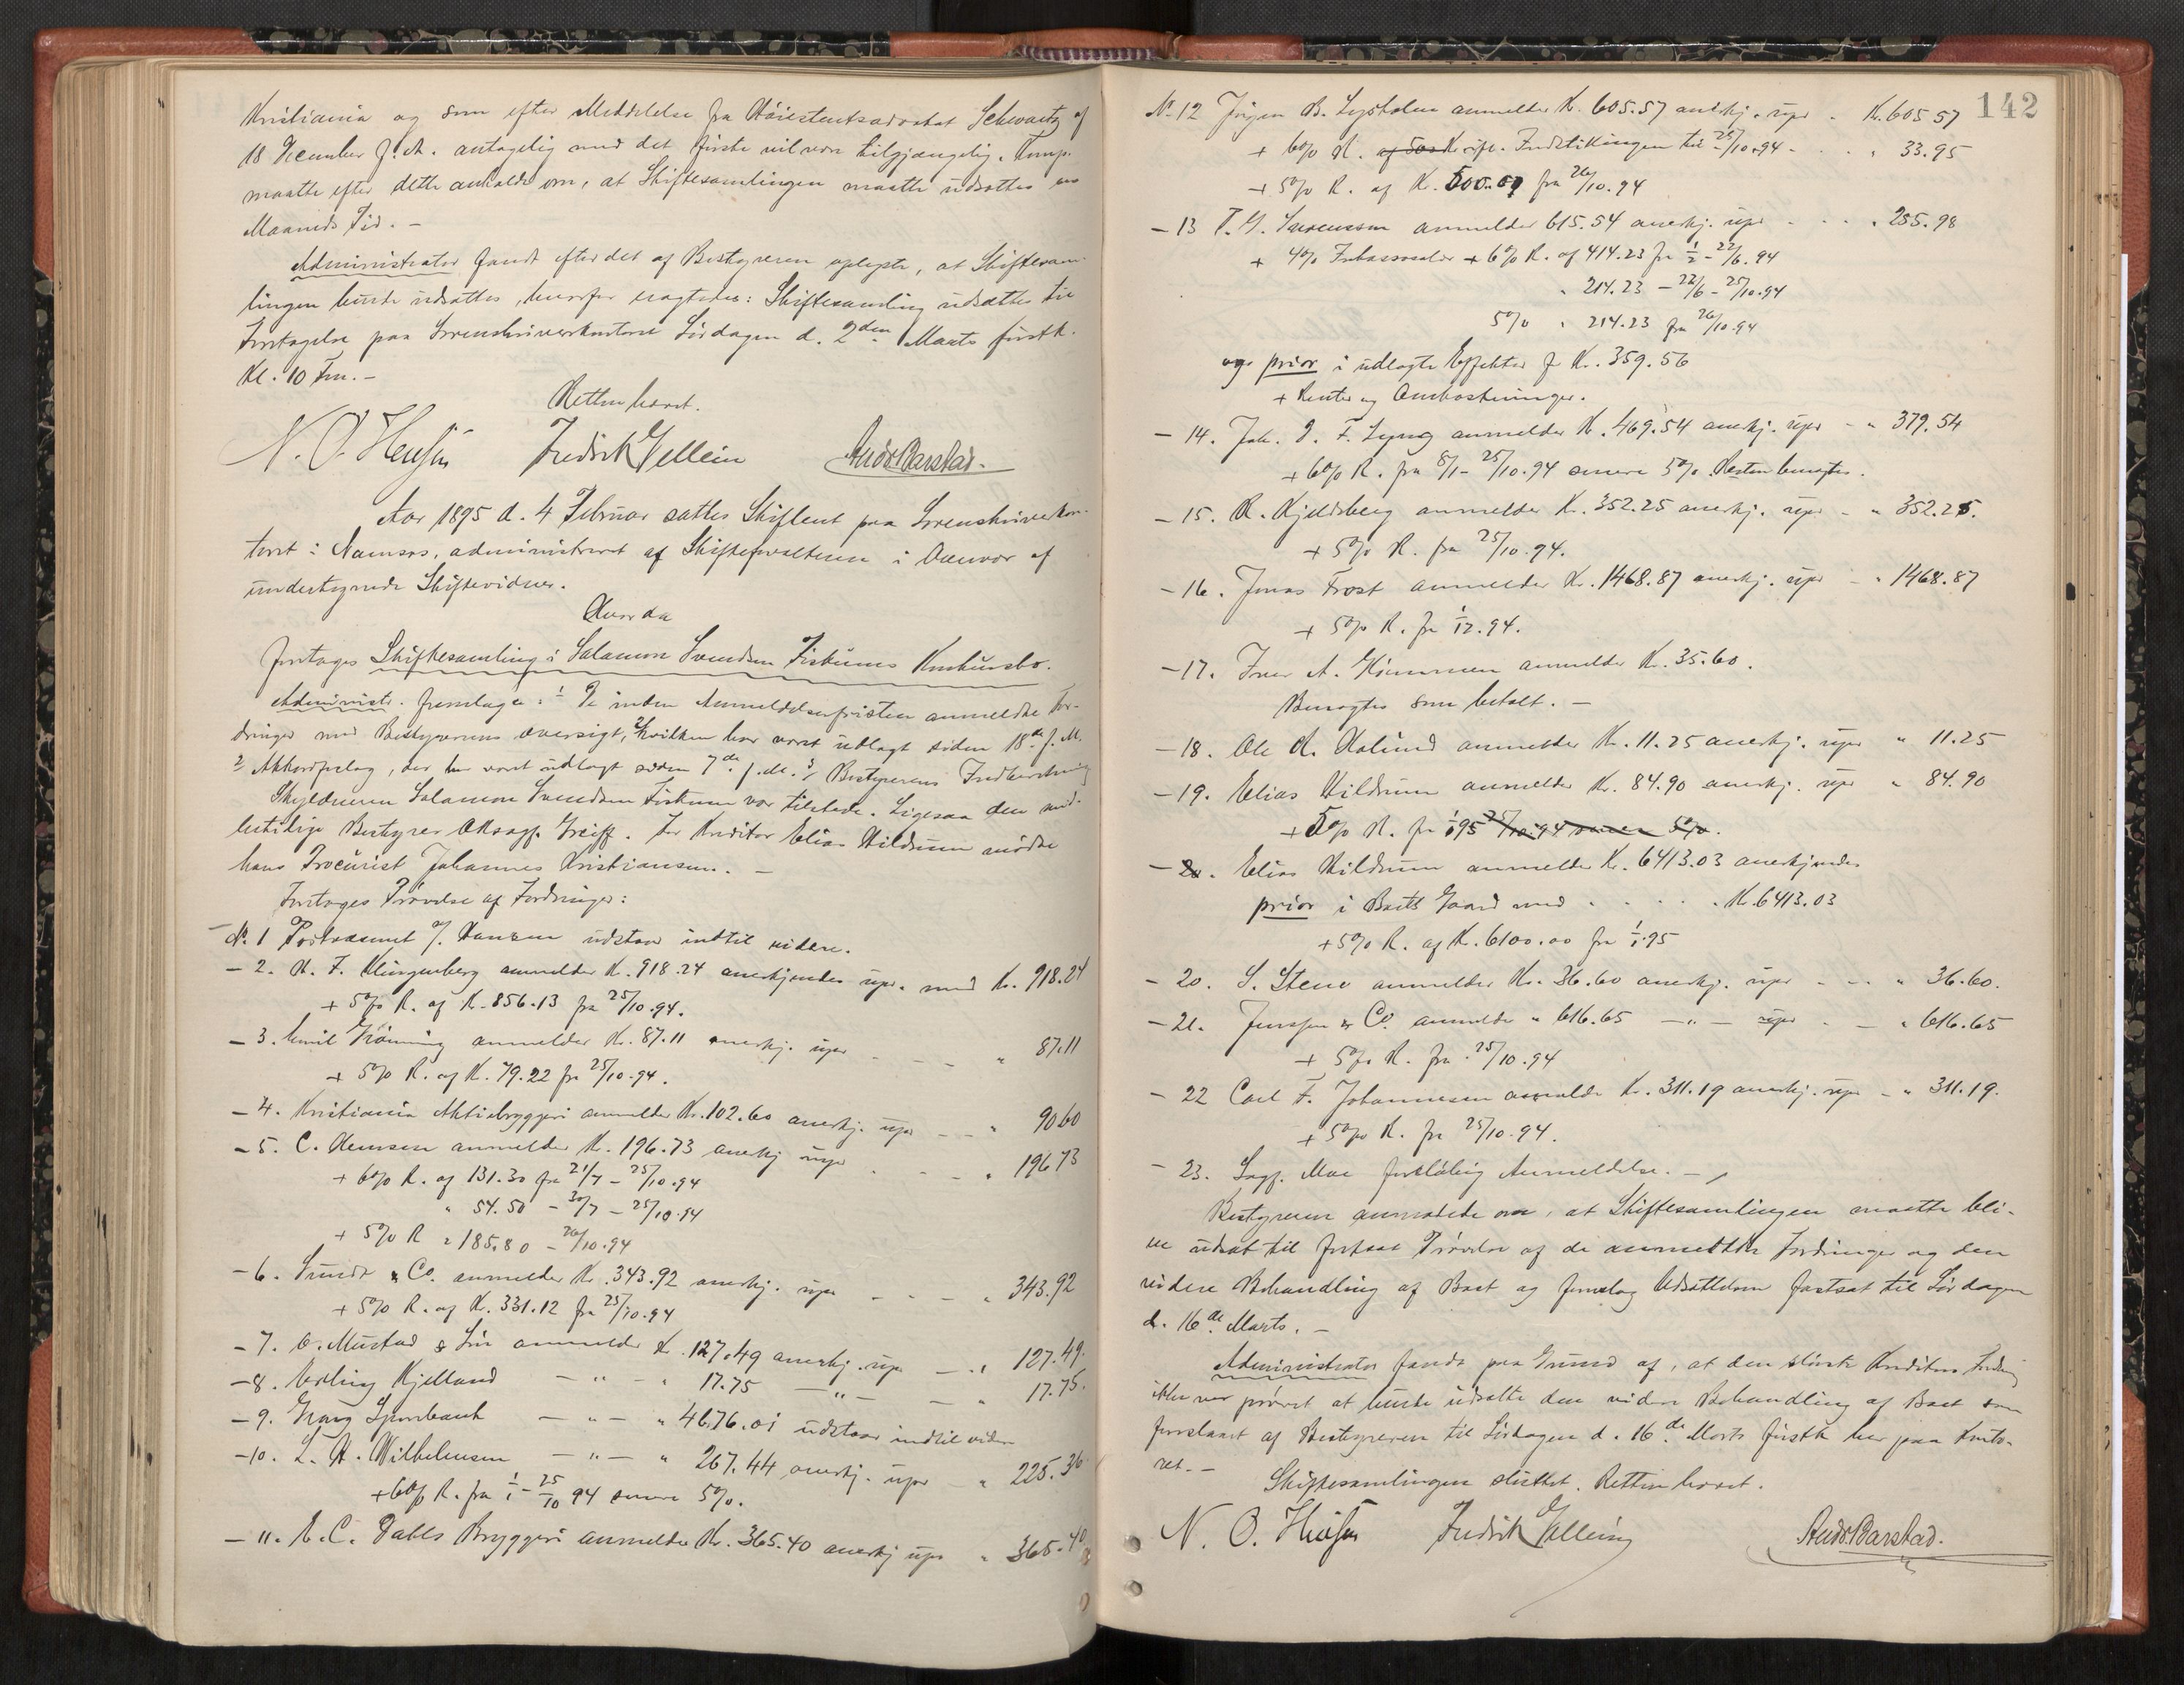 Kristiania og som efter Meddelelse fra Høiesteretsadvokat Schwartz af
18 December f. A. antagelig med det første vil være tilgjængelig. Komp.
maatte efter dette anholde om, at Skiftesamlingen maatte udsættes en
Maaneds Tid. -
Administrator fandt efter det af Bestyreren oplyste, at Skiftesam-
lingen burde udsættes, hvorfor eragtedes: Skiftesamling udsættes til
Foretagelse paa Sorenskriverkontoret Lørdagen d. 2den Marts førstk.
Kl. 10 Fm. -
Retten hævet.
N. O. Hensen Fredrik Gellein Andr Barstad.
Aar 1895 d. 4 Februar sattes Skifteret paa Sorenskriverkon-
toret i Namsos, administreret af Skifteforvalteren i Overvær af
undertegnede Skiftevidner.
Hvorda
foretoges Skiftesamling i Salamon Svendsen Fiskums Konkursbo.
Administr. fremlagde: 1 De inden Anmeldelsesfristen anmeldte For-
dringer med Bestyrerens Oversigt, hvilken har været udlagt siden 18de f. M.
2 Akkordforslag, der har været udlagt siden 7de f. M. 3, Bestyrerens Indberetning
Skyldneren Salamon Svendsen Fiskum var tilstede. Ligesaa den mid-
lertidige Bestyrer Oksagf. Greiff. For Kreditor Elias Hildrum mødte
hans Procurist Johannes Kristiansen. -
Foretoges Prøvelse af Fordringer:
No. 1 J. Hansen udstaar indtil videre.
- 2. H. F. Klingenberg anmelder K. 918.24 anerkjendes upr. med Kr. 918.24
+ 5% R. af K. 856.13 fra 25/10.94.
- 3. Emil Grønning anmelder Kr. 87.11 anerkj. upr - - - " 87.11
+ 5% R. af K. 79.22 fra 25/10.94.
- 4. Kristiania Aktiebryggeri anmelder Kr. 102.60 anerkj. upr - - " 90 60
- 5. C. Hemsen anmelder K. 196.73 anerkj upr - - " 196 73
+ 6% R. af 131.30 fra 21/7 - 25/10.94
" 54.50 - 30/7 - 25/10.94
+ 5% R " 185.80 - 26/10.94
- 6. Sundt & Co. anmelder Kr. 343.92 anerkj. upr - - - " 343.92
+ 5% R. af K. 331.12 fra 25/10.94
- 7. O. Mustad & Søn anmelder K. 127.49 anerkj. upr - " 127.49.
- 8. Erling Kjelland - " - " 17.75 - " - - " 17.75.
- 9. Grong Sparebank - " - " 4676.01 udstaar indtil videre
- 10. L. H. Wilhelmsen - " - " 267.44 anerkj. upr " 225.36
+ 6% R. fra 1/1 - 25/10 94 senere 5%.
- 11. E. C. Dahls Bryggeri anmelder Kr. 365.40 anerkj upr " 365.40
142
No. 12 Jørgen B. Lysholm anmelder K. 605.57 anerkj. upr - K. 605 57
+ 6% R. til 25/10.94 - - - " 33.95
+ 5% R. af K. fra 26/10.94
- 13 T. G. anmelder 615.54 anerkj. upr - - - " 255.98
+ 4% Inkassosalær + 6% R. af 414.23 fra 1/2 - 22/6.94
" 214.23 - 22/6 - 25/10.94
5% " 214.23 fra 26/10.94
og prior i udlagte Effekter f K. 359.56
+ Renter og Omkostninger.
- 14. Joh. F. Lyng anmelder K. 469.54 anerkj. upr - " 379.54
+ 6% R. fra 8/1 - 25/10.94 senere 5%. Resten benægtes.
- 15. R. Kjeldsberg anmelder K. 352.25 anerkj. upr - " 352.25.
+ 5% R. fra 25/10.94.
- 16. Jonas Frost anmelder Kr. 1468.87 anerkj. upr - " 1468.87
+ 5% R. fra 1/12.94.
- 17. Iver A. anmelder K. 35.60.
Benægtes som betalt. -
- 18. Ole H. anmelder Kr. 11.25 anerkj. upr " 11.25
- 19. Elias Hildrum anmelder Kr. 84.90 anerkj. upr " 84.90
+ 5% R. fra 1/1 95 25/10.94 senere 5%.
- 20. Elias Hildrum anmelder Kr. 6413.03 anerkjendes
prior i Boets Gaard med - - - - K. 6413.03
+ 5% R. af K. 6100.00 fra 1/1.95
- 20. S. Stene anmelder Kr. 36.60 anerkj. upr - - - " 36.60.
- 21. Jenssen & Co. anmelder " 616.65 - " - upr - - " 616.65
+ 5% R. fra 25/10.94
- 22 Carl F. Johannesen anmelder Kr. 311.19 anerkj. upr - " 311.19.
+ 5% R. fra 25/10.94.
- 23. Sagf. Moe foreløbig Anmeldelse. -
Bestyreren anmodede om, at Skiftesamlingen maatte bli-
ve udsat til fortsat Prøvelse af de anmeldte Fordringer og den
videre Behandling af Boet og foreslog Udsættelsen fastsat til Lørdagen
d. 16de Marts. -
Administrator fandt paa Grund af, at den største Kreditors Fordring
ikke var prøvet at burde udsætte den videre Behandling af Boet som
foreslaaet af Bestyreren til Lørdagen d. 16de Marts førstk her paa Konto-
ret. -
Skiftesamlingen sluttet. Retten hævet.
N. O. Hensen Fredrik Gellein Andr Barstad.